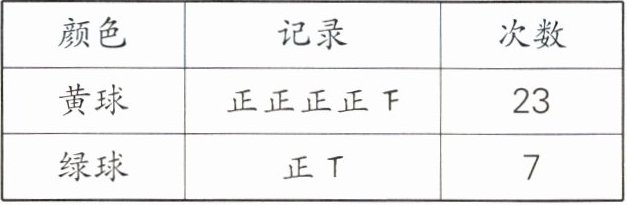 颜色 记录 次数
黄球 正正正正𠄟 23
绿球 正丅 7